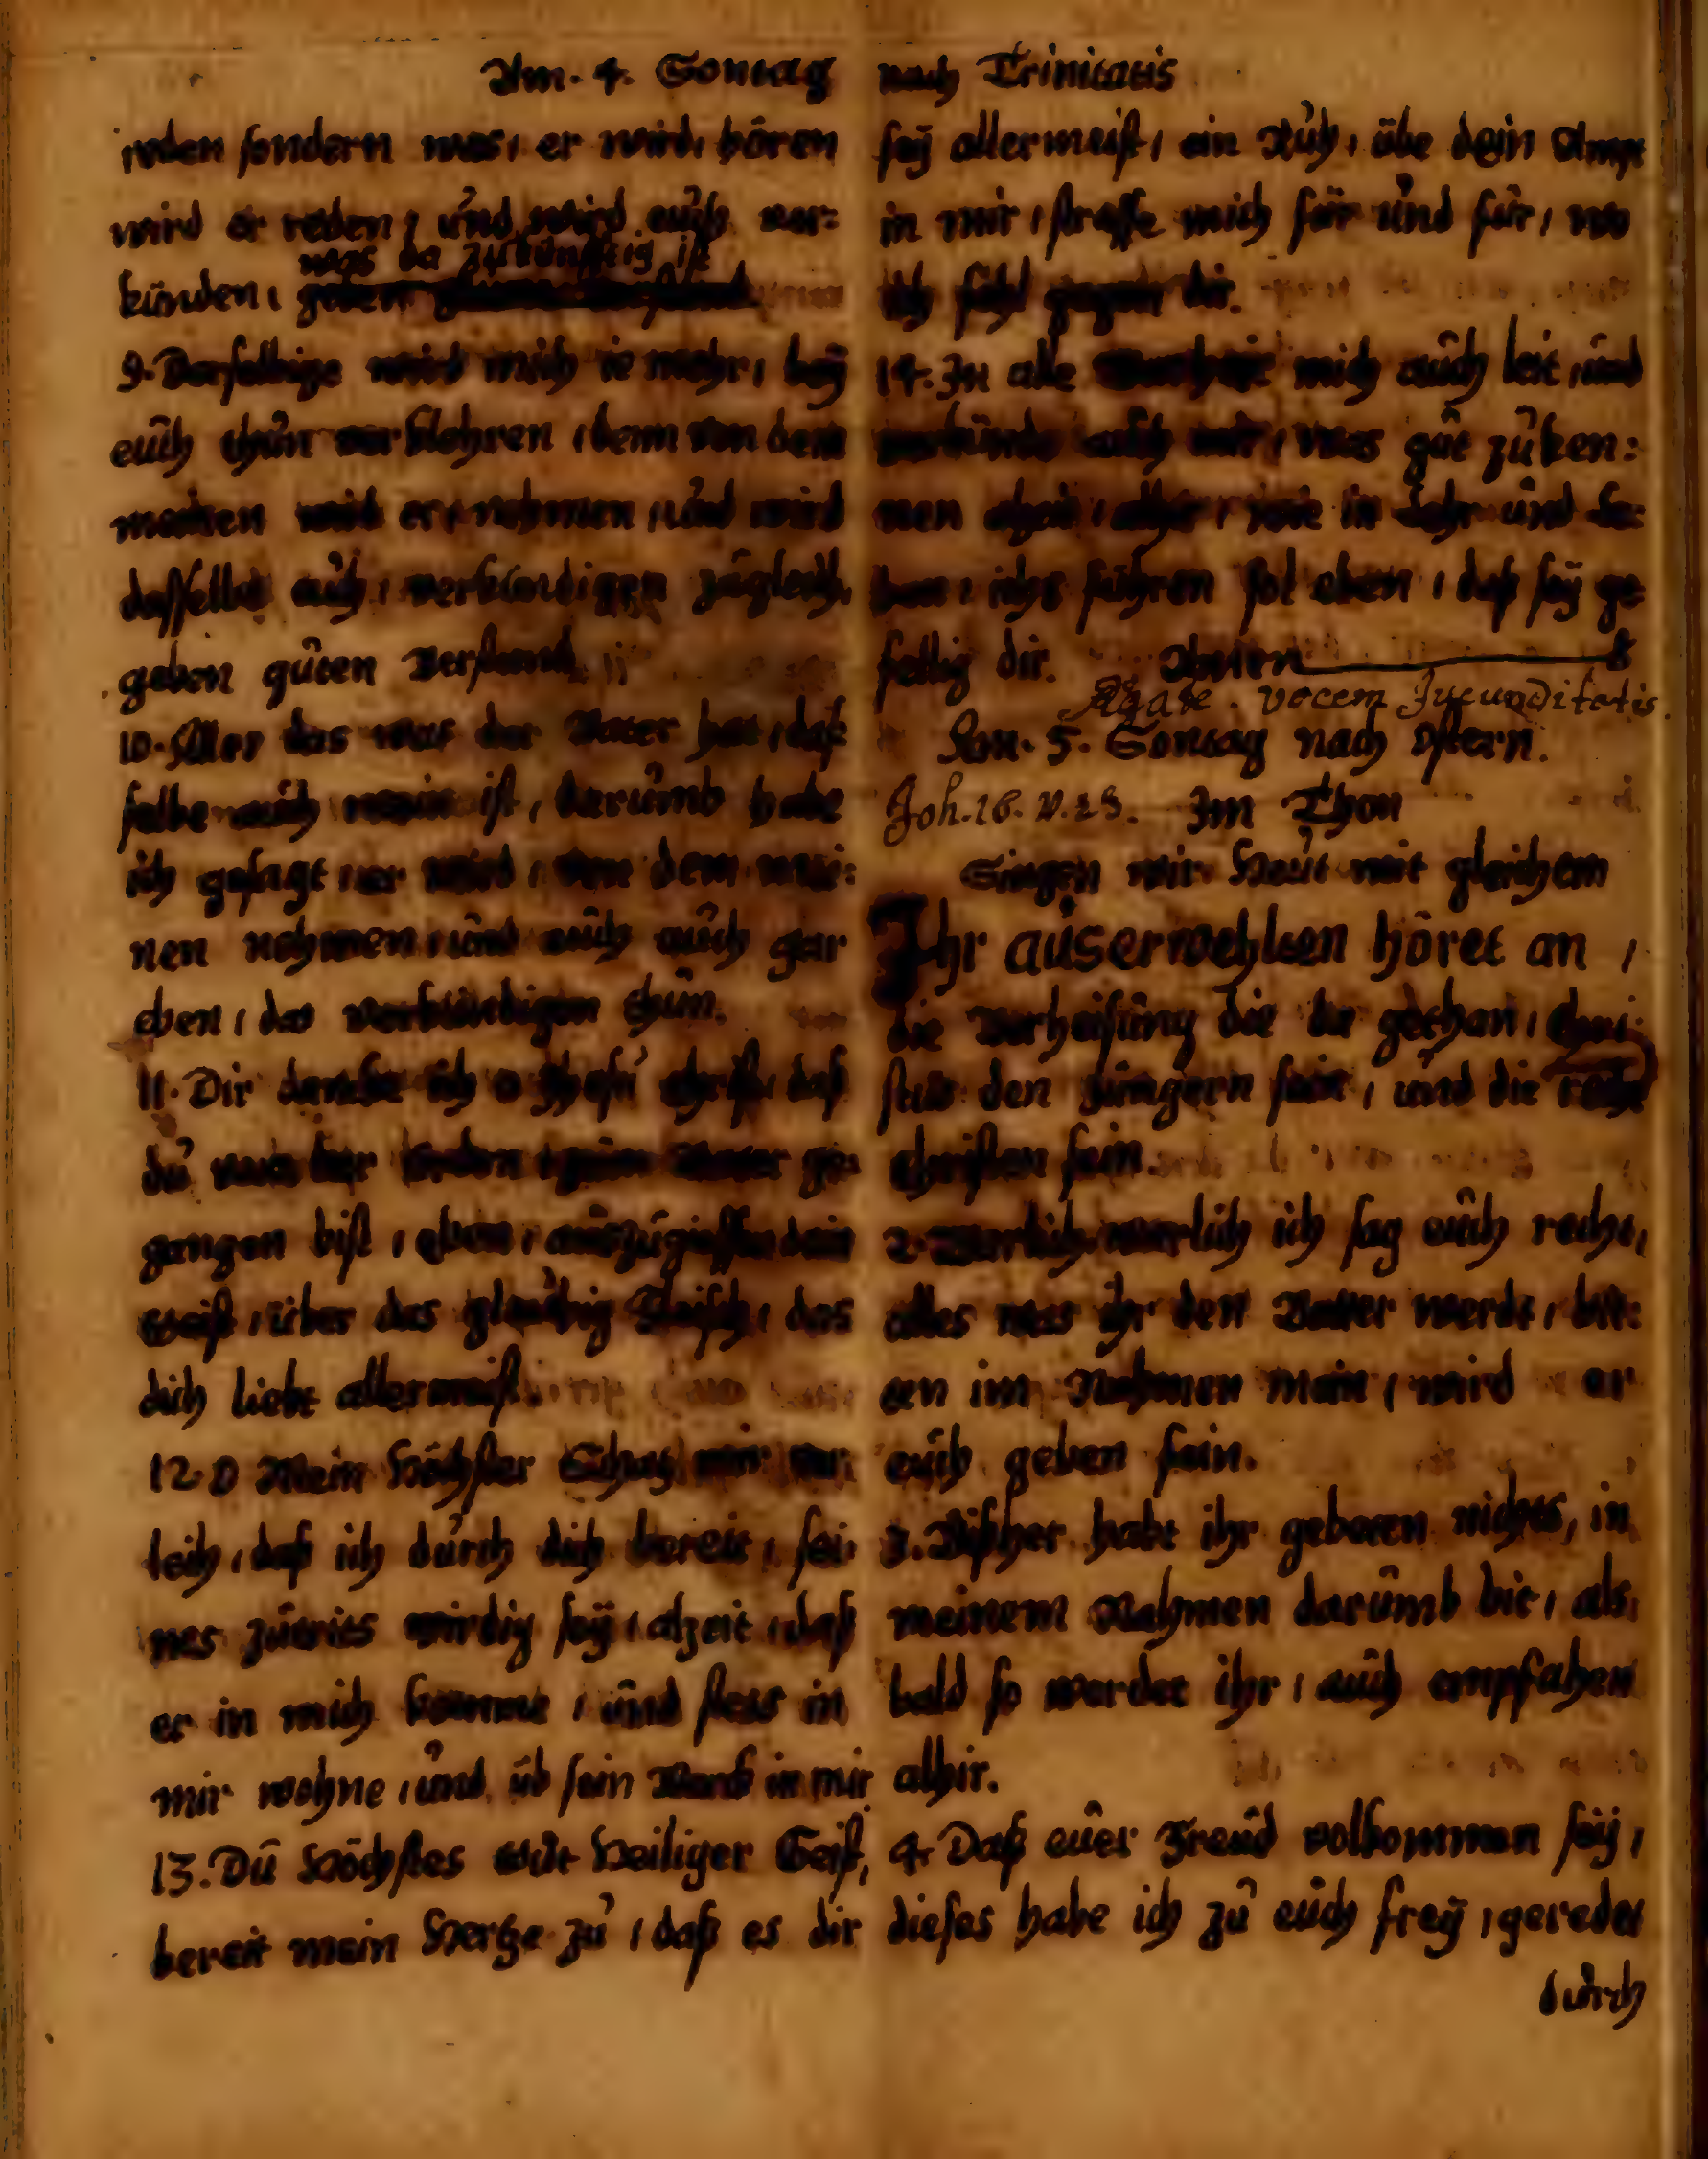 Am. 4. Sontag nach Trinitatis
reden sondern was, er wird, hören
wird er reden, und wird euch ver:
was da zukünfftig ist
künden, geben
9. Derselbige wird mich ie mehr, beÿ
euch thun verklehren, denn von dem
meinen wird er, nehmen, und wird
dasselbe auch, verkündigen zugleich,
geben guten verstand.
10. Alles das was der Vater hat, daß
selbe auch mein ist, darumb habe
ich gesagt, er wird, von dem mei:
nen nehmen, und euch auch gar
eben, das verkündigen thun.
11. Dir dancke ich o Jhesu christ, daß
du von der erden zum Vater ge:
gangen bist, eben, auszugiessen dein
Geist, über das gleubig Fleisch, das
dich liebt allermeist.
12. O Mein Höchster Schatz mir ver:
leih, daß ich durch dich bereit, sei:
nes zutrits wirdig seÿ, alzeit, daß
er in mich komme, und stets in
mir wohne, und, üb sein Werck in mir
13. Du Höchstes Gut Heiliger Geist,
bereit mein Hertze zu, daß es dir
seÿ allermeist, ein Ruh, übe dein Ampt
in mir, straffe mich für und für, wo
ich fehl gegen dir.
14. In alle Warheit mich auch leit, und
verkünde auch mir, was gut zuken:
nen alzeit, alhir, wie in Lehr und Le:
ben, ichs führen sol eben, daß seÿ ge
fellig dir. Amen
Rogate. vocem Jucunditatis.
Am. 5. Sontag nach Ostern.
Joh. 16. v. 23. Im Thon
Singen wir Heut mit gleichem
Ihr auserwehlten höret an,
die Verheisung die da gethan, Chri:
stus den Jüngern sein, und die rechte
christen sein.
2. Warlich warlich ich sag euch recht,
alles was ihr den Vatter werdt, bit:
ten im Nahmen mein, wird er
euch geben fein.
3. Bißher habt ihr gebeten nichts, in
meinem Nahmen darumb bit, als,
bald so werdet ihr, auch empfahen
alhir.
4. Daß euer Freud volkommen seÿ,
dieses habe ich zu euch freÿ, geredet
durch